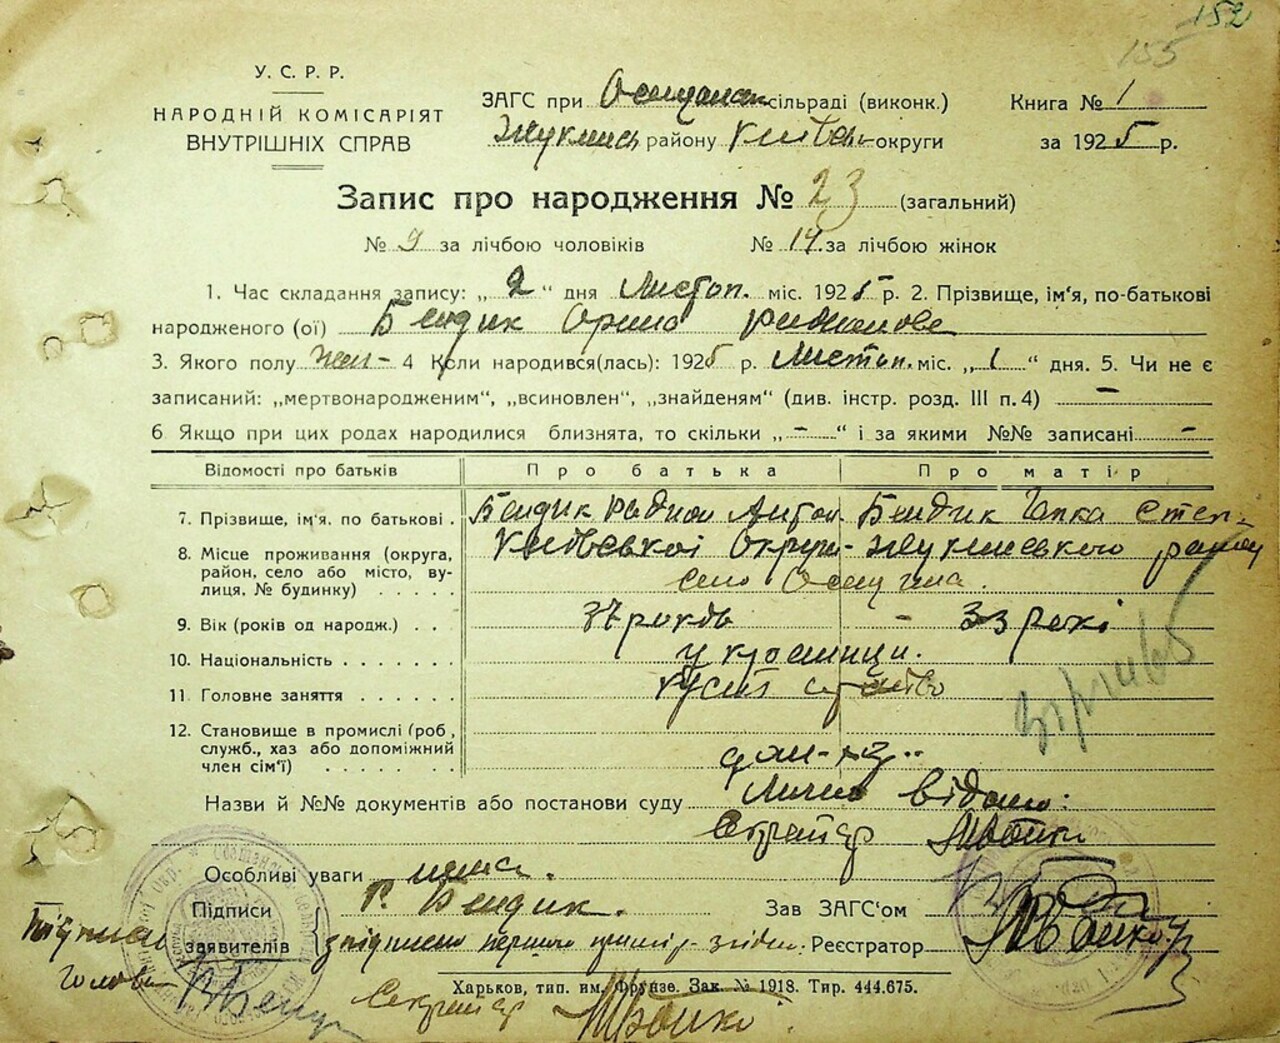 152
155
У. С. Р. Р.
НАРОДНІЙ КОМІСАРІЯТ
ВНУТРІШНІХ СПРАВ
ЗАГС при сільраді (виконк.)
району Київськ округи
Книга № 1
за 1925 р.
Запис про народження № 23 (загальний)
№ 9 за лічбою чоловіків № 14 за лічбою жінок
1. Час складання запису: „ 2 “ дня Листоп. міс. 1925 р. 2. Прізвище, ім'я, по-батькові
народженого (ої) Бендик Орина Радионова
3. Якого полу жін- 4 Коли народився(лась): 1925 р. Листоп. міс. „ 1 “ дня. 5. Чи не є
записаний: „мертвонародженим“, „всиновлен“, „знайденям“ (див. інстр. розд. III п. 4) —
6 Якщо при цих родах народилися близнята, то скільки „ - “ і за якими №№ записані -
Відомості про батьків Про батька Про матір
7. Прізвище, ім'я. по батькові . Бендик Радион Антон. Бендик Гапка Степ-
8. Місце проживання (округа, район, село або місто, вулиця, № будинку) Київської Округи- району
село Осещина.
9. Вік (років од народж.) . . 37 років - 33 рокі
10. Національність українци.
11. Головне заняття
12. Становище в промислі (роб, служб., хаз або допоміжний член сім'ї)
Назви й №№ документів або постанови суду Лично відомо:
Секретар
Особливі уваги нема.
Підписи заявителів Р. Бендик.
з підписано першого примір- згідно.
Зав ЗАГС'ом
Реєстратор
Підписи
Голова
Секретар
Харьков, тип. им. Фрунзе. Зак. № 1918. Тир. 444.675.